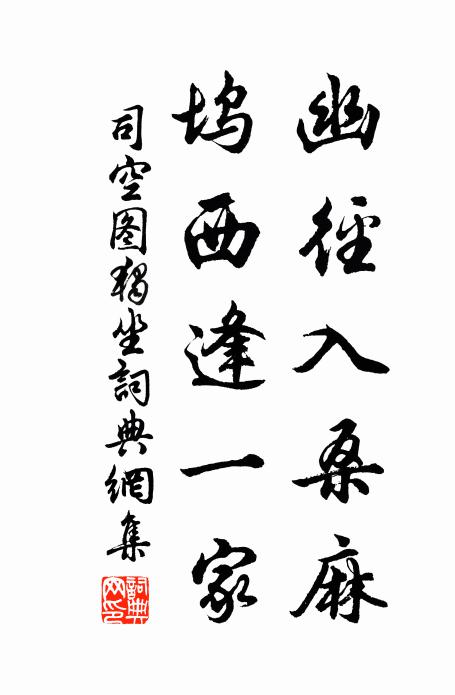 幽徑入桑麻
塢西逢一家
司空图獨坐詞典網集
詞典网印